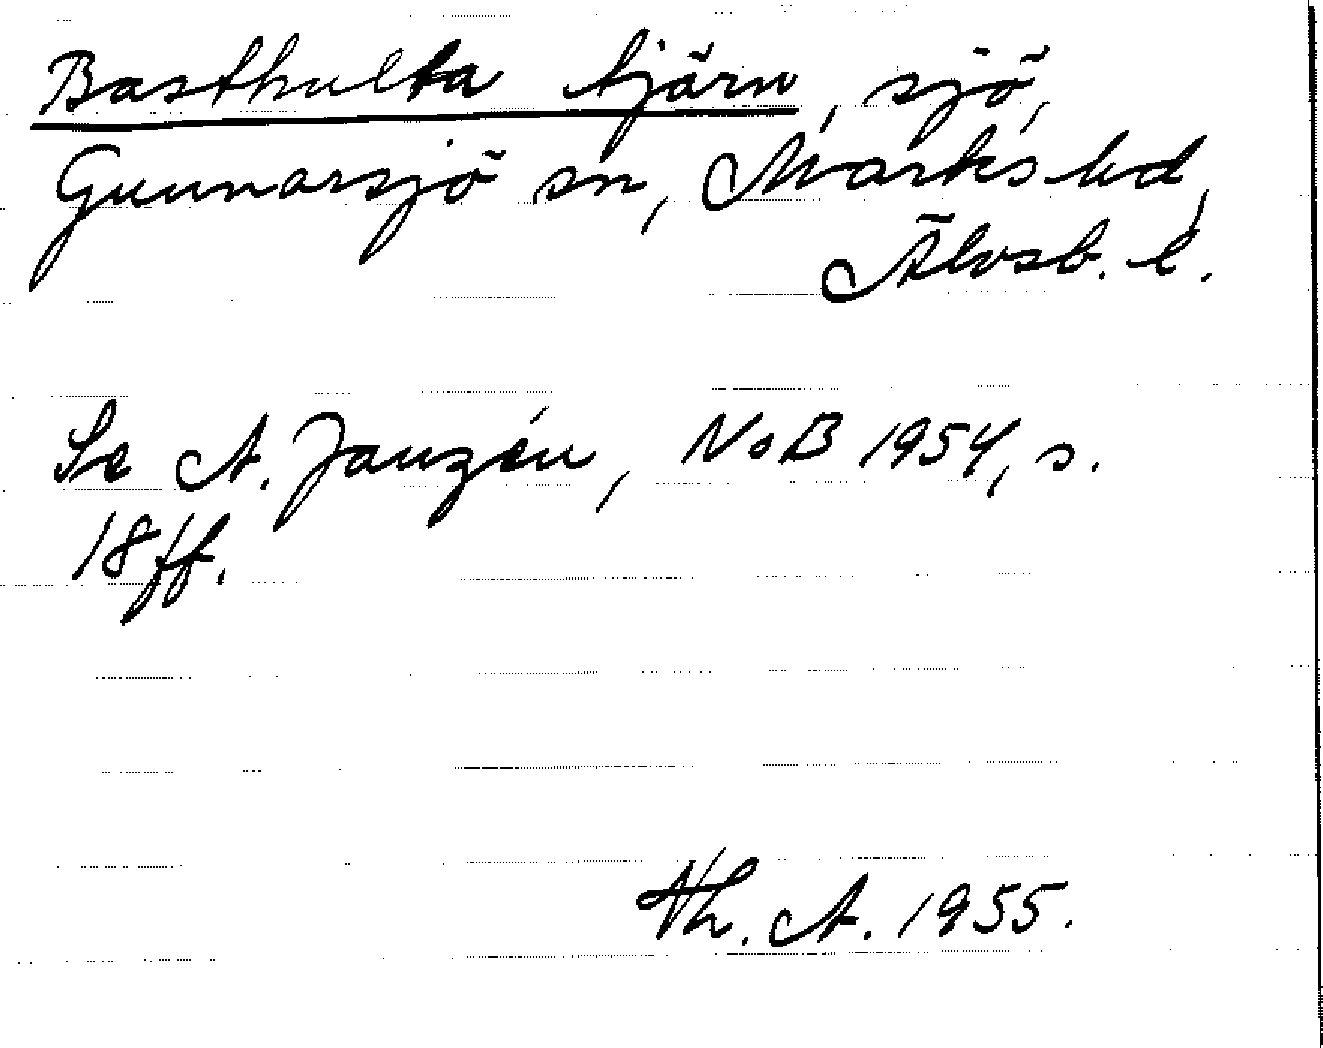 Basthulta tjärn, sjö,
Gunnarsjö sn, Marks hd,
Älvsb. l.
Se A. Janzén, NoB 1954, s.
18 ff.
Th. A. 1955.